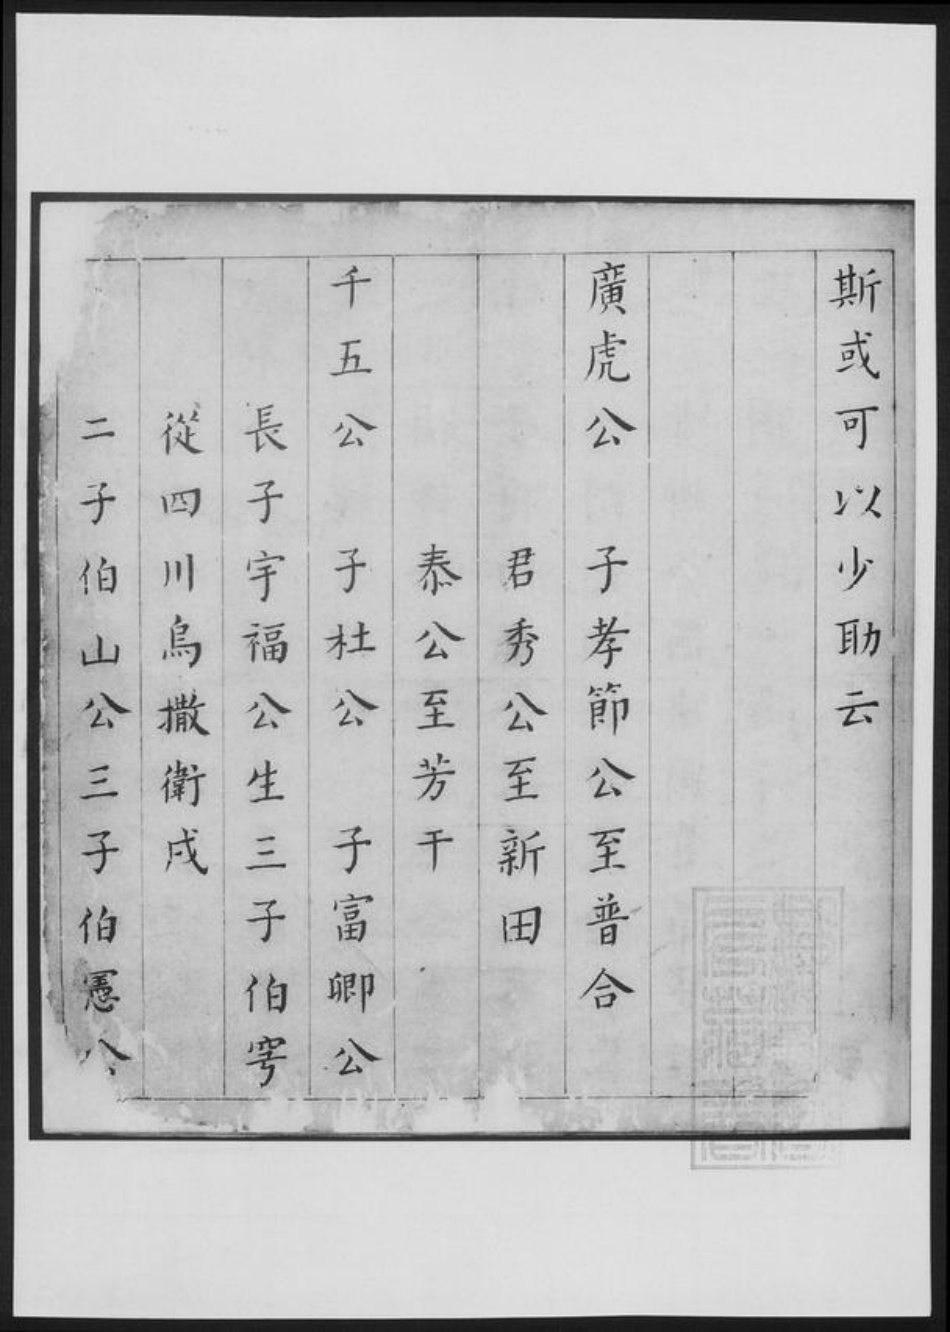 斯或可以少助云
廣虎公　子孝節公至普合
君秀公至新田
泰公至芳干
千五公　子杜公　子富卿公
長子宇福公生三子伯穹
從四川烏撒衛戍
二子伯山公三子伯憲公